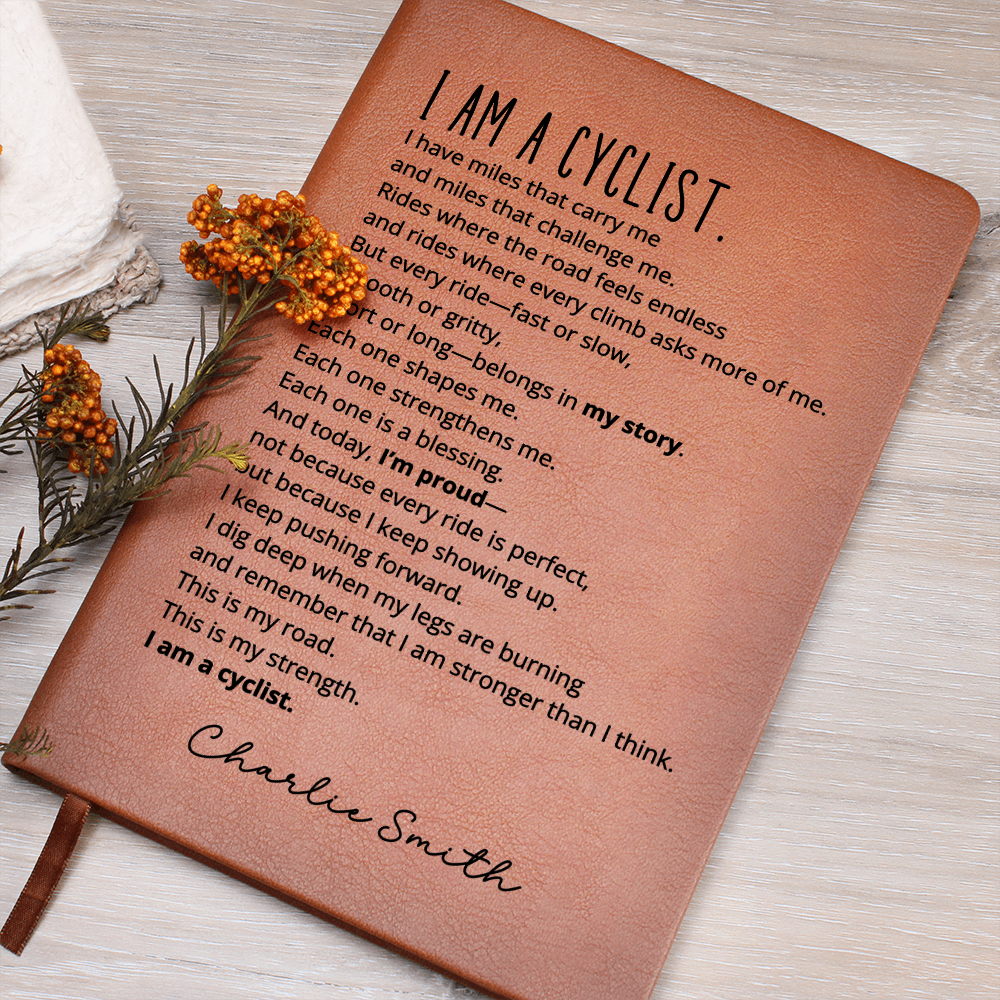 I AM A CYCLIST.
I have miles that carry me
and miles that challenge me.
Rides where the road feels endless
and rides where every climb asks more of me.
But every ride—fast or slow,
ooth or gritty,
ort or long—belongs in my story.
Each one shapes me.
Each one strengthens me.
Each one is a blessing.
And today, I'm proud—
not because every ride is perfect,
but because I keep showing up.
I keep pushing forward.
I dig deep when my legs are burning
and remember that I am stronger than I think.
This is my road.
This is my strength.
I am a cyclist.
Charlie Smith